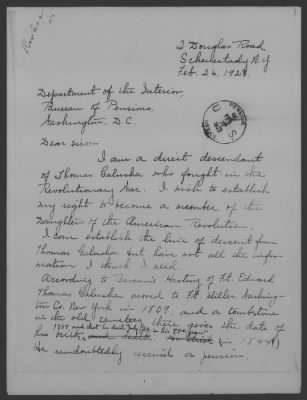 2 Douglas Road
Schenectady N.Y
Feb. 26, 1928.
Department of the Interior,
Bureau of Pensions
Washington, D.C.
Dear Sirs:-
I am a direct descendant
of Thomas Calusha who fought in the
Revolutionary War. I wish to establish
my right to become a member of the
Daughters of the American Revolution.
I can establish the line of descent from
Thomas Calusha but have not all the infor-
mation I think I need.
According to Bascom's History of Ft. Edward
Thomas Calusha moved to Ft. Miller Washing-
ton Co. New York in 1809, and a tombstone
in the old cemetery there gives the date of
his birth, and death
(in 1844)
He undoubtedly received a pension.